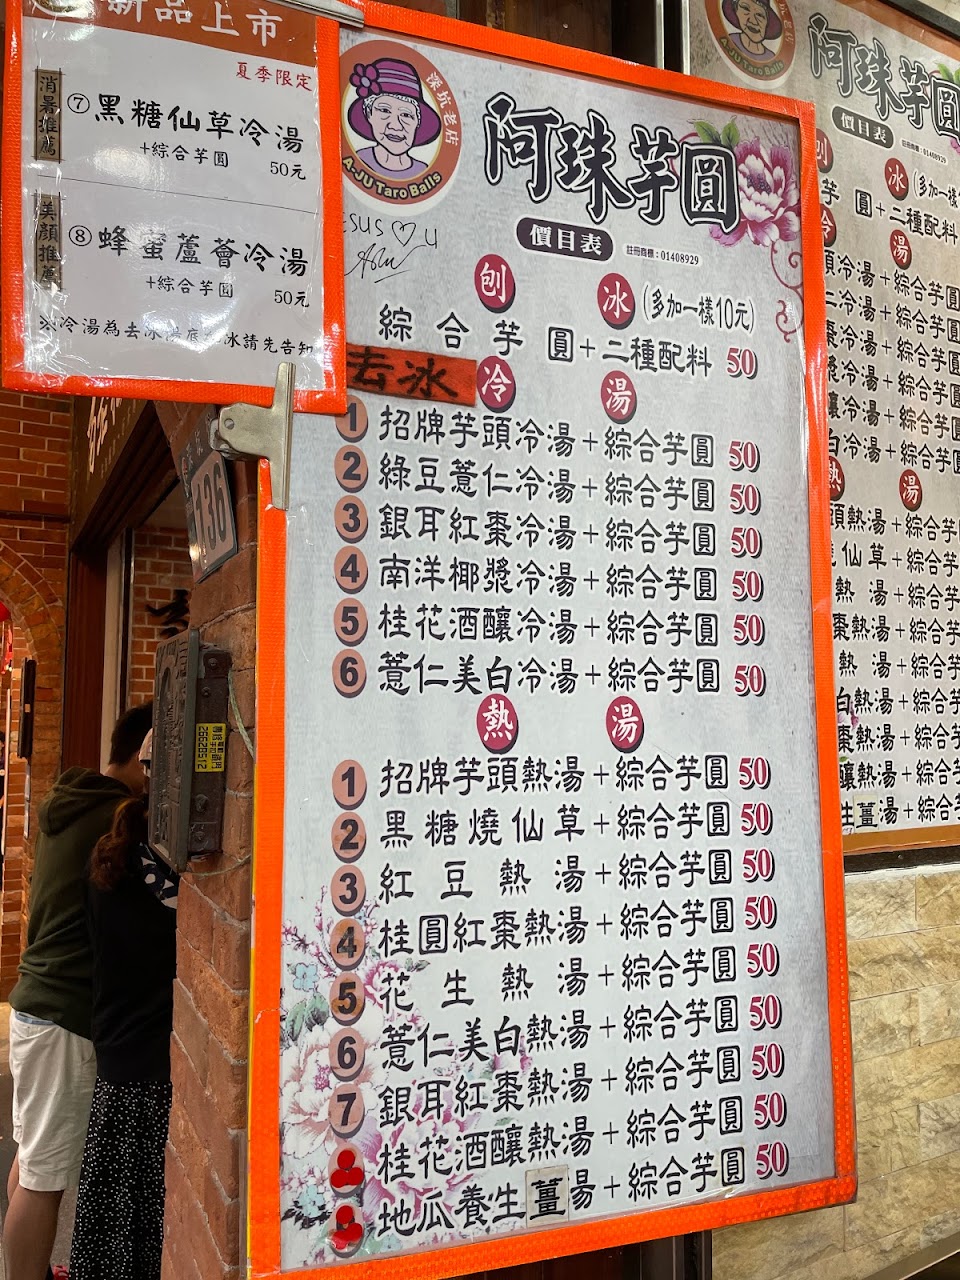 新品上市
夏季限定
消暑推薦
⑦黑糖仙草冷湯
+綜合芋圓 50元
美顏推薦
⑧蜂蜜蘆薈冷湯
+綜合芋圓 50元
※冷湯為去冰
冰請先告知
深坑老店
A-JU Taro Balls
阿珠芋圓
價目表
註冊商標:01408929
esus ♡ u
刨冰(多加一樣10元)
綜合芋圓+二種配料 50
去冰
冷湯
1 招牌芋頭冷湯+綜合芋圓 50
2 綠豆薏仁冷湯+綜合芋圓 50
3 銀耳紅棗冷湯+綜合芋圓 50
4 南洋椰漿冷湯+綜合芋圓 50
5 桂花酒釀冷湯+綜合芋圓 50
6 薏仁美白冷湯+綜合芋圓 50
熱湯
1 招牌芋頭熱湯+綜合芋圓 50
2 黑糖燒仙草+綜合芋圓 50
3 紅豆熱湯+綜合芋圓 50
4 桂圓紅棗熱湯+綜合芋圓 50
5 花生熱湯+綜合芋圓 50
6 薏仁美白熱湯+綜合芋圓 50
7 銀耳紅棗熱湯+綜合芋圓 50
桂花酒釀熱湯+綜合芋圓 50
地瓜養生薑湯+綜合芋圓 50
136
26628512
老店
A-JU Taro Balls
阿珠芋圓
價目表
註冊商標:01408929
刨冰(多加一樣
芋圓+二種配料
冷湯
頭冷湯+綜合芋圓
仁冷湯+綜合芋圓
棗冷湯+綜合芋圓
漿冷湯+綜合芋圓
釀冷湯+綜合芋圓
白冷湯+綜合芋圓
熱湯
頭熱湯+綜合芋圓
燒仙草+綜合芋
熱湯+綜合芋
棗熱湯+綜合芋
熱湯+綜合芋
白熱湯+綜合芋
棗熱湯+綜合芋
釀熱湯+綜合芋
生薑湯+綜合芋